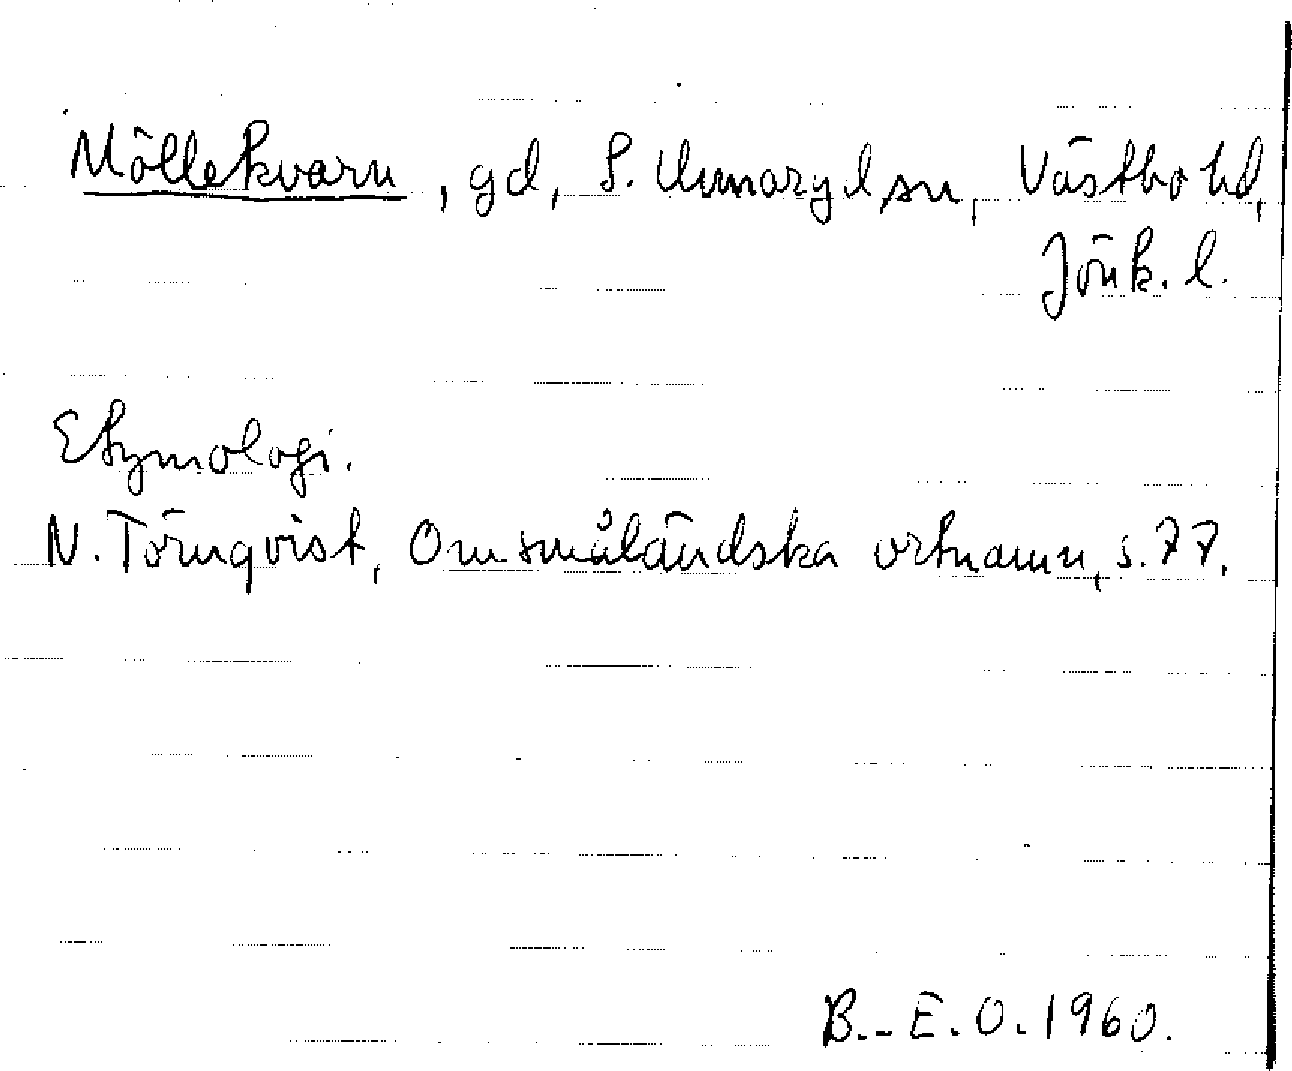 Möllekvarn, gd, S. Unnaryd sn, Västbo hd,
Jönk. l.
Etymologi.
N. Törnqvist, Om småländska ortnamn, s. 77.
B.-E.O. 1960.